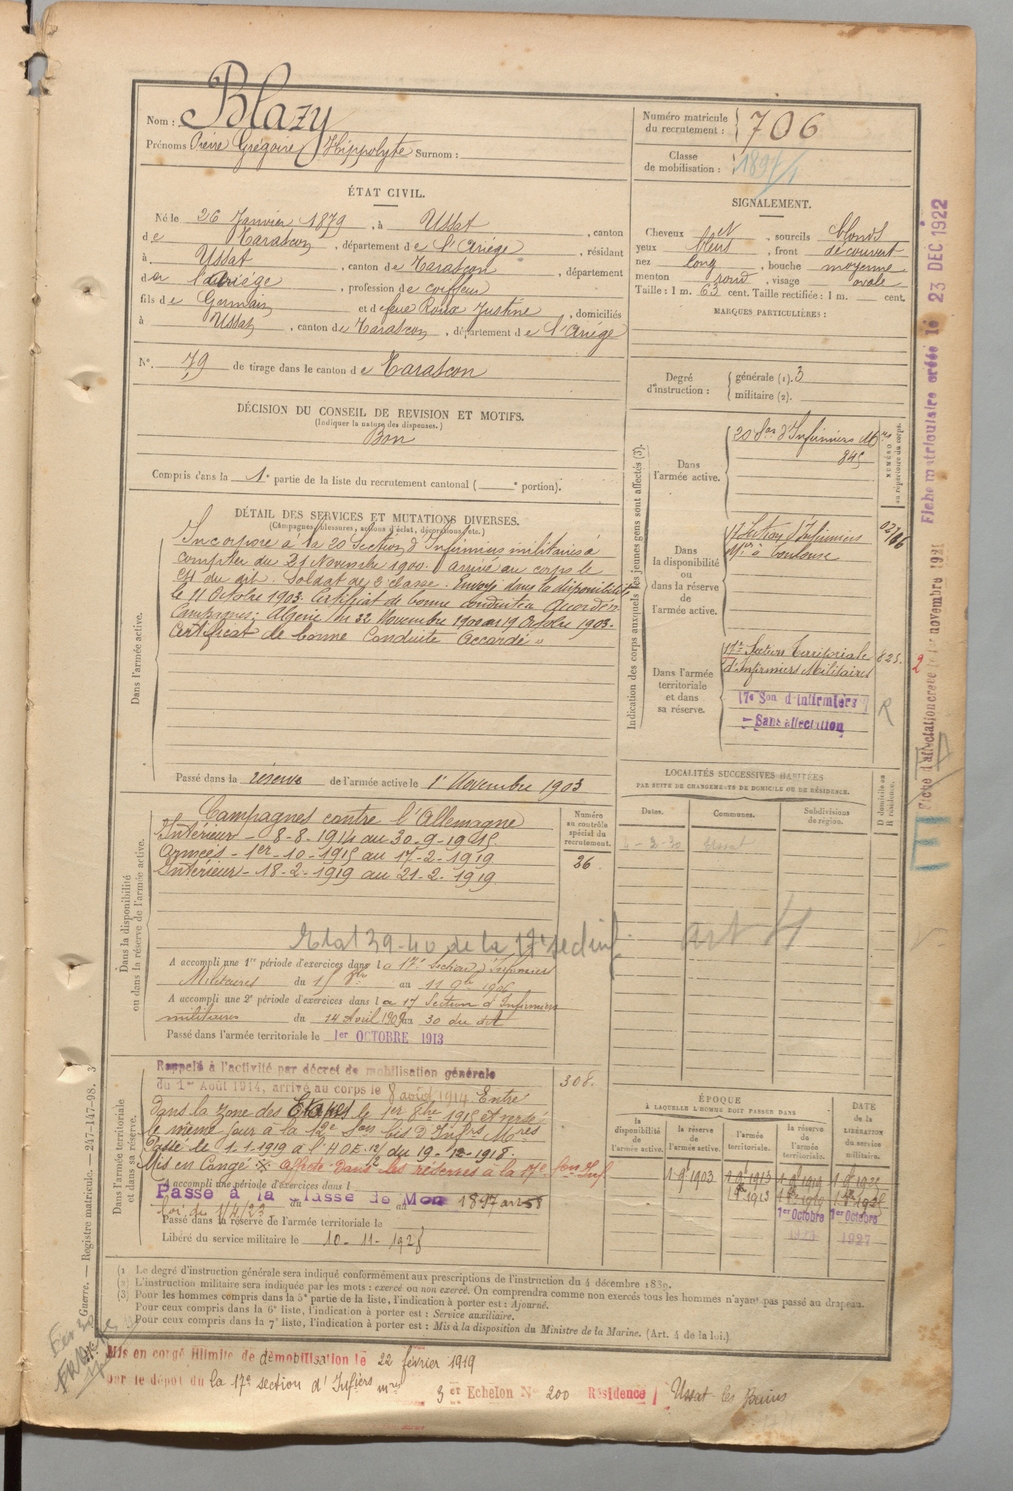 Nom : Blazy
Prénoms Pierre Grégoire Hippolyte Surnom :
Numéro matricule
du recrutement : 706
Classe
de mobilisation :
ÉTAT CIVIL.
Né le 26 Janvier 1879, à Ussat, canton
de Tarascon, département de l'Ariége, résidant
à Ussat, canton de Tarascon, département
de l'Ariége, profession de coiffeur
fils de Germain et de feue Roux Justine, domiciliés
à Ussat, canton de Tarascon, département de l'Ariége
N° 79 de tirage dans le canton de Tarascon
SIGNALEMENT.
Cheveux et, sourcils blonds
yeux bleus, front découvert
nez long, bouche moyenne
menton rond, visage ovale
Taille : 1 m. 63 cent. Taille rectifiée : 1 m. cent.
MARQUES PARTICULIÈRES :
Degré
d'instruction :
générale (1). 3
militaire (2).
DÉCISION DU CONSEIL DE REVISION ET MOTIFS.
(Indiquer la nature des dispenses.)
Bon
Compris dans la 1e partie de la liste du recrutement cantonal ( e portion).
DÉTAIL DES SERVICES ET MUTATIONS DIVERSES.
(Campagnes, blessures, actions d'éclat, décorations, etc.)
Dans l'armée active.
Incorporé à la 20 Section d'Infirmiers militaires à
compter du 21 Novembre 1900. Arrivé au corps le
et du dit. Soldat de 2e classe. Envoyé dans la disponibilité
le 11 Octobre 1903. Certificat de bonne conduite Accordé
Campagnes: Algérie du 22 Novembre 1900 au 19 Octobre 1903.
Certificat de bonne Conduite Accordé
Passé dans la réserve de l'armée active le 1er Novembre 1903
Indication des corps auxquels les jeunes gens sont affectés (3).
NUMÉRO
au répertoire du corps.
Dans
l'armée active.
20 Son d'Infirmiers Mres
845
Dans
la disponibilité
ou
dans la réserve
de
l'armée active.
17 Section d'Infirmiers
Mres à Toulouse
Dans l'armée
territoriale
et dans
sa réserve.
17e Section Territoriale
d'Infirmiers Militaires
825.
17e Son d'Infirmiers
Sans affectation
R
LOCALITÉS SUCCESSIVES HABITÉES
PAR SUITE DE CHANGEMENTS DE DOMICILE OU DE RÉSIDENCE.
Dates. Communes. Subdivisions
de région. D domicile ou
R résidence.
Ussat
art 4
Dans la disponibilité
ou dans la réserve de l'armée active.
Campagnes contre l'Allemagne
Intérieur - 8-8-1914 au 30-9-1915.
Armées - 1er-10-1915 au 17-2-1919
Intérieur - 18-2-1919 au 21-2-1919
Numéro
au contrôle
spécial du
recrutement.
26
Etat 39-40 de la 17e sect inf
A accompli une 1re période d'exercices dans la 17e Section d'Infirmiers
Militaires du 15 8bre au 11 9bre 1906
A accompli une 2e période d'exercices dans la 17 Section d'Infirmiers
militaires du 14 Avril 1909 au 30 du dit
Passé dans l'armée territoriale le 1er OCTOBRE 1913
Dans l'armée territoriale
et dans sa réserve.
Rappelé à l'activité par décret de mobilisation générale
du 1er Août 1914, arrivé au corps le 8 août 1914 Entré
308.
dans la zone des Etapes le 1er 8bre 1915
le même jour à la 12e Son bis d'Infrs Mres
Passé le 1-1-1919 à l'HOE du 19-12-1918.
Mis en Congé affecté dans les réserves à la 17e Son Inf.
A accompli une période d'exercices dans l
Passé à la classe de Mob 1897 art 58
loi du 1/4/23 du au
Passé dans la réserve de l'armée territoriale le
Libéré du service militaire le 10-11-1928
ÉPOQUE
À LAQUELLE L'HOMME DOIT PASSER DANS
DATE
de la
LIBÉRATION
du service
militaire.
la
disponibilité
de
l'armée active. la réserve
de
l'armée active. l'armée
territoriale. la réserve
de l'armée
territoriale.
1 9 1903 1 9 1913 1 9 1919
1er Octobre 1er Octobre
1927
(1) Le degré d'instruction générale sera indiqué conformément aux prescriptions de l'instruction du 4 décembre 1889.
(2) L'instruction militaire sera indiquée par les mots : exercé ou non exercé. On comprendra comme non exercés tous les hommes n'ayant pas passé au drapeau.
(3) Pour les hommes compris dans la 5e partie de la liste, l'indication à porter est : Ajourné.
Pour ceux compris dans la 6e liste, l'indication à porter est : Service auxiliaire.
Pour ceux compris dans la 7e liste, l'indication à porter est : Mis à la disposition du Ministre de la Marine. (Art. 4 de la loi.)
Mis en congé illimité de démobilisation le 22 février 1919
par le dépôt du la 17e section d'Infiers mres
3er Echelon N° 200 Résidence Ussat les Bains
Guerre. — Registre matricule. — 247-147-98. 3
Fiche matriculaire créée le 23 DEC 1922
Fiche d'affectation créée le 1er novembre 1921